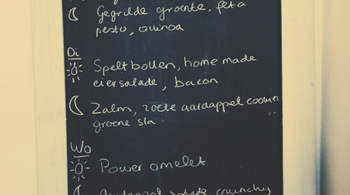 Gegrilde groente, feta
pesto, quinoa
Di
Spelt bollen, home made
eiersalade, bacon
Zalm, zoete aardappel
groene sla
Wo
Power omelet
crunchy